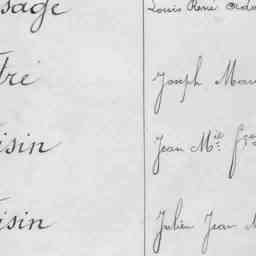 sage Louis René
tré Joseph
isin Jean M^el f^çois
isin Julien Jean M